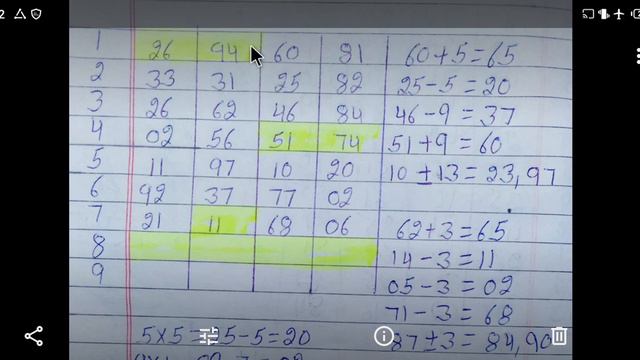 2
1 26 94 60 91 60+5=65
2 33 31 25 82 25-5=20
3 26 62 46 84 46-9=37
4 02 56 51 74 51+9=60
5 11 97 10 20 10±13=23,97
6 92 37 77 02
7 21 11 68 06 62+3=65
8 14-3=11
9 05-3=02
71-3=68
5x5=25-5=20 87±3=84,90